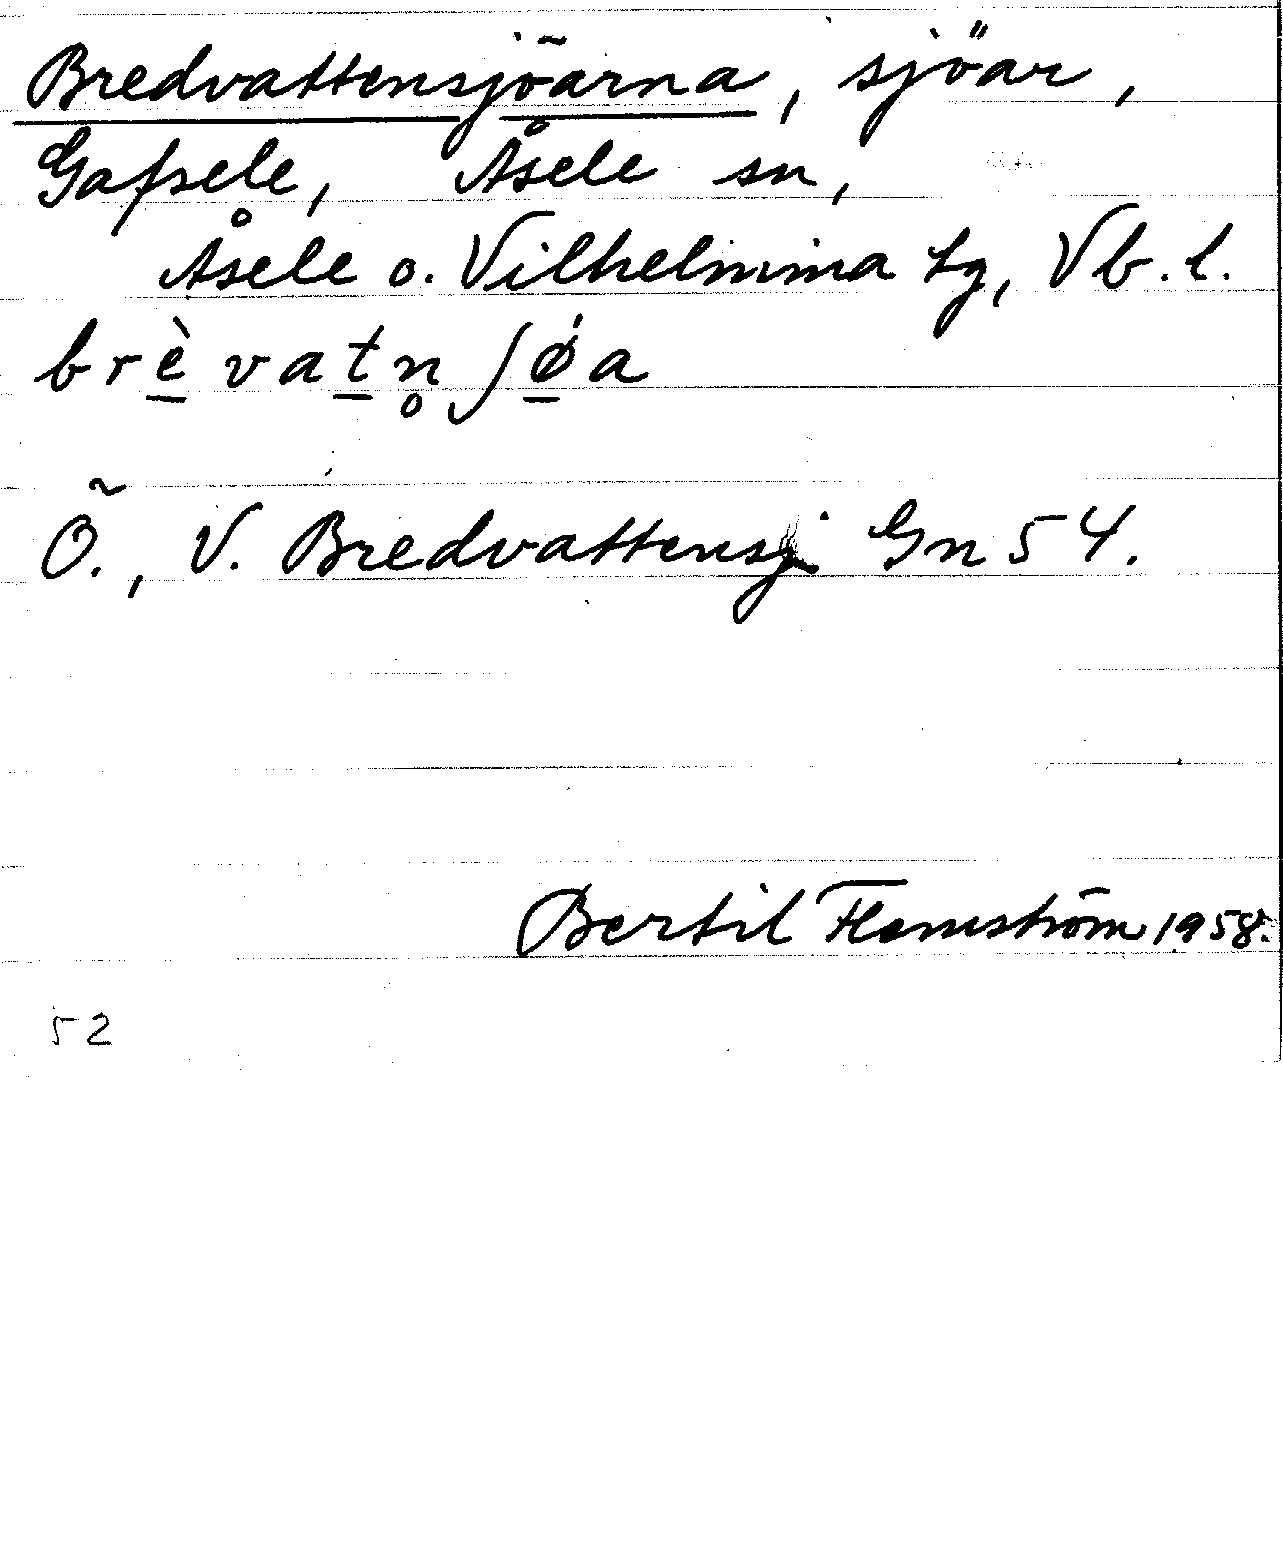 Bredvattensjöarna, sjöar,
Gafsele, Åsele sn,
Åsele o. Vilhelmina tg, Vb. l.
br<u>è</u> va<u>t</u>n̥ ʃ<u>ǿ</u>a
Ö., V. Bredvattensj Gn 54.
Bertil Flemström 1958.
52